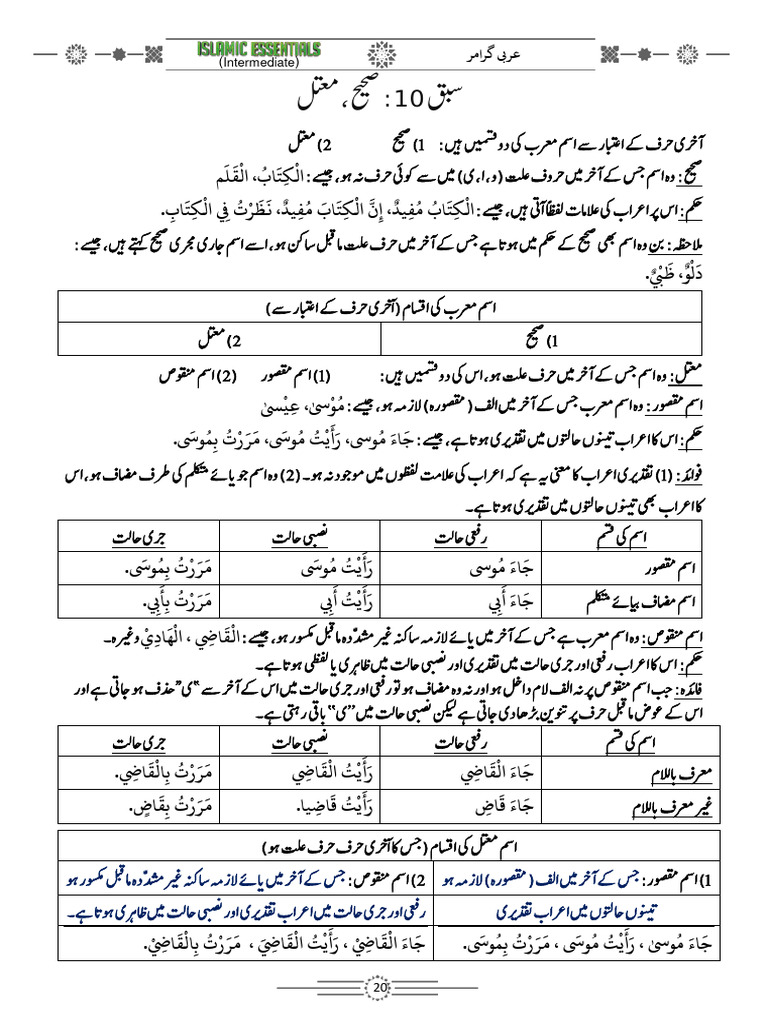 ISLAMIC ESSENTIALS
(Intermediate)
عربی گرامر
سبق 10: صحیح، معتل
آخری حرف کے اعتبار سے اسم معرب کی دو قسمیں ہیں: 1) صحیح 2) معتل
صحیح: وہ اسم جس کے آخر میں حروف علت (و،ا،ی) میں سے کوئی حرف نہ ہو، جیسے: الْكِتَابُ، الْقَلَم
حکم: اس پر اعراب کی علامات لفظاً آتی ہیں، جیسے: الْكِتَابُ مُفِيدٌ، إِنَّ الْكِتَابَ مُفِيدٌ، نَظَرْتُ فِي الْكِتَابِ.
ملاحظہ: بن وہ اسم بھی صحیح کے حکم میں ہوتا ہے جس کے آخر میں حرف علت ماقبل ساکن ہو، اسے اسم جاری مجری صحیح کہتے ہیں، جیسے:
دَلْوٌ، ظَبْيٌ.
اسم معرب کی اقسام (آخری حرف کے اعتبار سے)
1) صحیح 2) معتل
معتل: وہ اسم جس کے آخر میں حرف علت ہو، اس کی دو قسمیں ہیں: (1) اسم مقصور (2) اسم منقوص
اسم مقصور: وہ اسم معرب جس کے آخر میں الف (مقصورہ) لازمہ ہو، جیسے: مُوْسىٰ، عِيْسىٰ
حکم: اس کا اعراب تینوں حالتوں میں تقدیری ہوتا ہے، جیسے: جَاءَ مُوسى، رَأَيْتُ مُوسَى، مَرَرْتُ بِمُوسَى.
فوائد: (1) تقدیری اعراب کا معنی یہ ہے کہ اعراب کی علامت لفظوں میں موجود نہ ہو۔ (2) وہ اسم جو یائے متکلم کی طرف مضاف ہو، اس
کا اعراب بھی تینوں حالتوں میں تقدیری ہوتا ہے۔
اسم کی قسم رفعی حالت نصبی حالت جری حالت
اسم مقصور جَاءَ مُوسى رَأَيْتُ مُوسَى مَرَرْتُ بِمُوسَى.
اسم مضاف بیائے متکلم جَاءَ أَبِي رَأَيْتُ أَبِي مَرَرْتُ بِأَبِي.
اسم منقوص: وہ اسم معرب ہے جس کے آخر میں یائے لازمہ ساکنہ غیر مشدّدہ ماقبل مکسور ہو، جیسے: الْقَاضِي ، الْهَادِيْ وغیرہ۔
حکم: اس کا اعراب رفعی اور جری حالت میں تقدیری اور نصبی حالت میں ظاہری یا لفظی ہوتا ہے۔
فائدہ: جب اسم منقوص پر نہ الف لام داخل ہو اور نہ وہ مضاف ہو تو رفعی اور جری حالت میں اس کے آخر سے ”ی“ حذف ہو جاتی ہے اور
اس کے عوض ماقبل حرف پر تنوین بڑھا دی جاتی ہے لیکن نصبی حالت میں ”ی“ باقی رہتی ہے۔
اسم کی قسم رفعی حالت نصبی حالت جری حالت
معرف باللام جَاءَ الْقَاضِي رَأَيْتُ الْقَاضِي مَرَرْتُ بِالْقَاضِي.
غیر معرف باللام جَاءَ قَاضٍ رَأَيْتُ قَاضِيا. مَرَرْتُ بِقَاضٍ.
اسم معتل کی اقسام (جس کا آخری حرف حرف علت ہو)
1) اسم مقصور: جس کے آخر میں الف (مقصورہ) لازمہ ہو 2) اسم منقوص: جس کے آخر میں یائے لازمہ ساکنہ غیر مشدّدہ ماقبل مکسور ہو
تینوں حالتوں میں اعراب تقدیری رفعی اور جری حالت میں اعراب تقدیری اور نصبی حالت میں ظاہری ہوتا ہے۔
جَاءَ مُوسىٰ ، رَأَيْتُ مُوسَى ، مَرَرْتُ بِمُوسَى. جَاءَ الْقَاضِيْ ، رَأَيْتُ الْقَاضِيَ ، مَرَرْتُ بِالْقَاضِيْ.
20